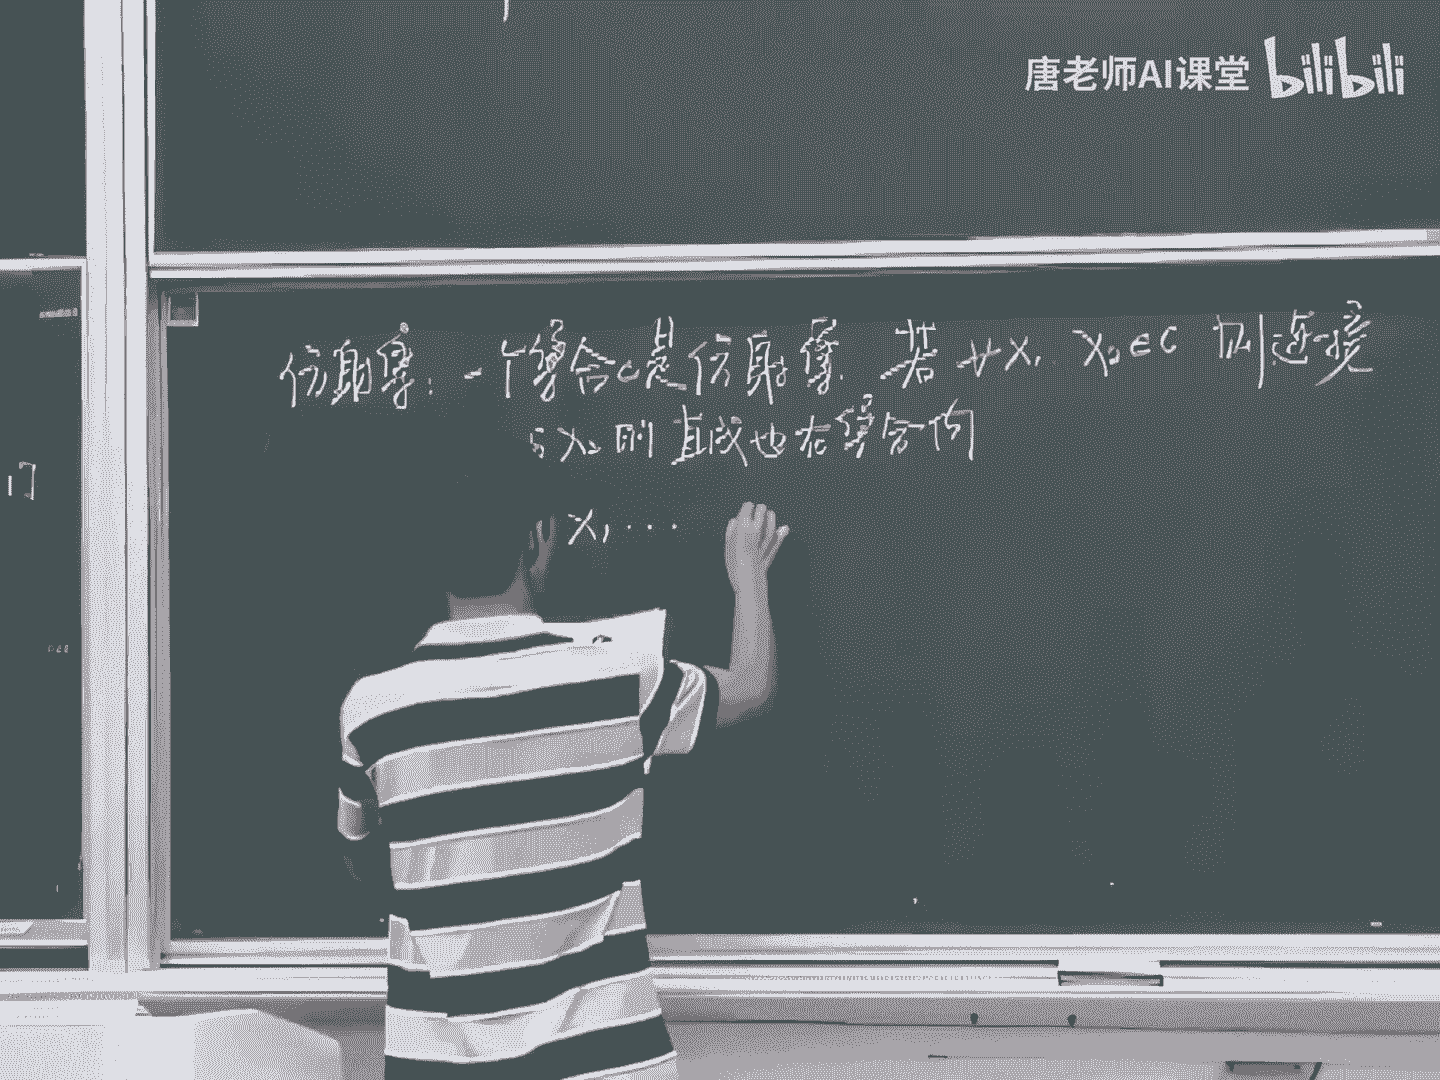 唐老师AI课堂 bilibili
仿射集：一个集合C是仿射集，若∀X₁ X₂∈C 则连接
与X₂的直线也在集合内
X₁ ...